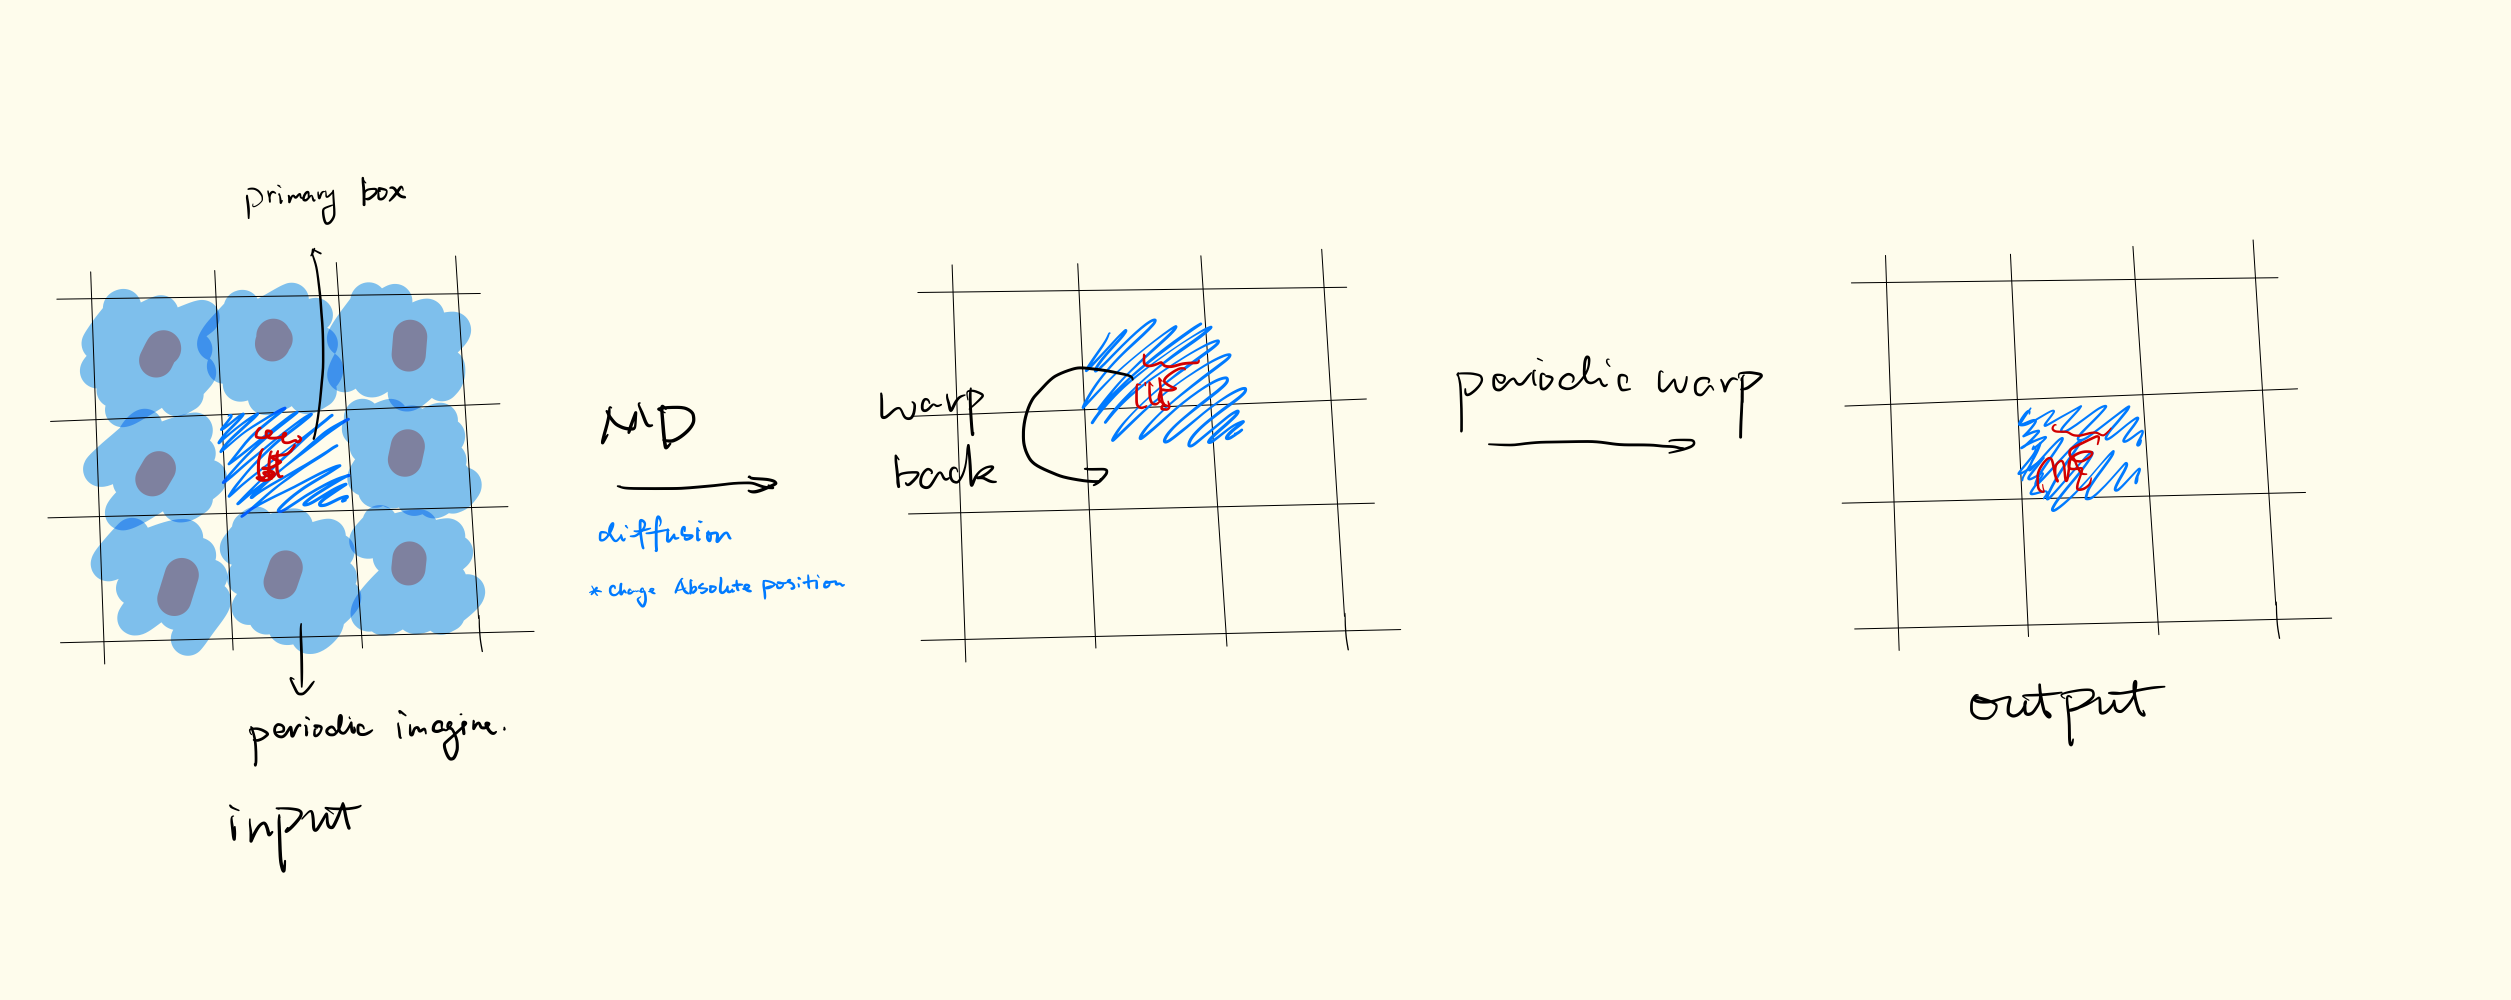 primary box
periodic imagine.
input
MD
diffusion
* change Absolute position
warp
back
periodic warp
output